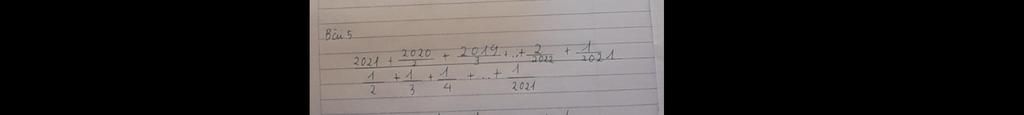 Bài 5
2021 + 2020/2 + 2019/3 + ... + 2/2022 + 1/2021
1/2 + 1/3 + 1/4 + ... + 1/2021